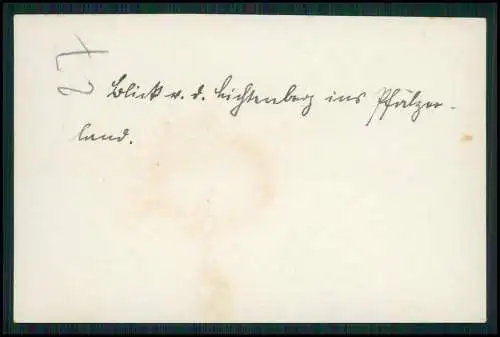 27
Blick v. d. Lichtenberg ins Pfälzer-
land.